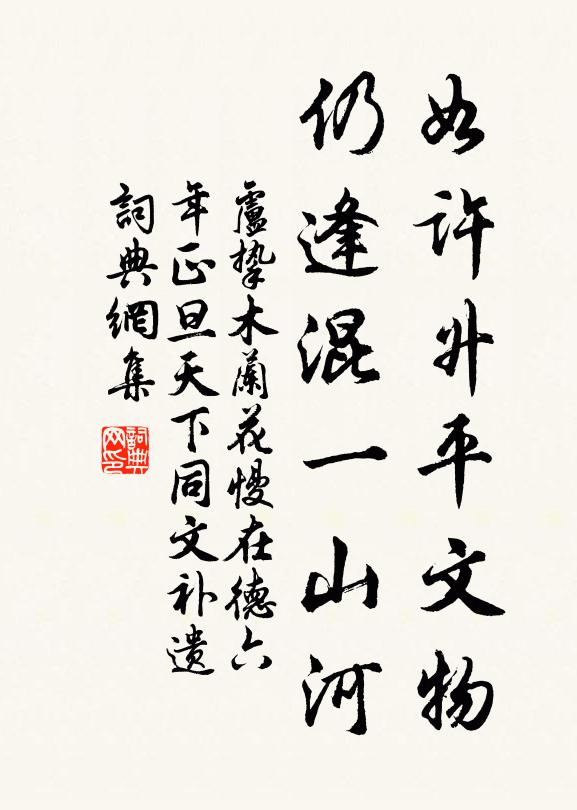 如许升平文物
仍逢混一山河
盧摯木蘭花慢在德六
年正旦天下同文补遗
詞典網集
詞典网印